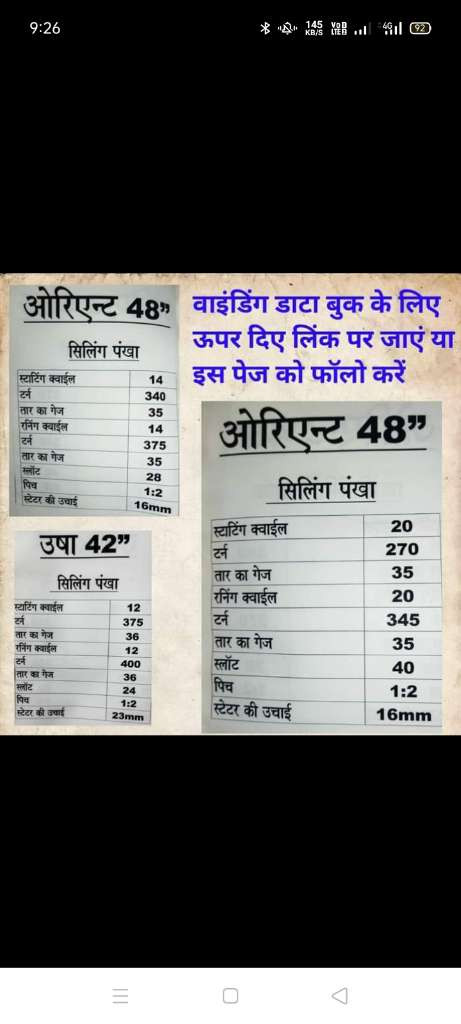 9:26
145 KB/S VoD LTE 2 4G 92
ओरिएन्ट 48”
सिलिंग पंखा
स्टार्टिंग क्वाईल 14
टर्न 340
तार का गेज 35
रनिंग क्वाईल 14
टर्न 375
तार का गेज 35
स्लॉट 28
पिच 1:2
स्टेटर की उचाई 16mm
वाइंडिंग डाटा बुक के लिए
ऊपर दिए लिंक पर जाएं या
इस पेज को फॉलो करें
उषा 42”
सिलिंग पंखा
स्टार्टिंग क्वाईल 12
टर्न 375
तार का गेज 36
रनिंग क्वाईल 12
टर्न 400
तार का गेज 36
स्लॉट 24
पिच 1:2
स्टेटर की उचाई 23mm
ओरिएन्ट 48”
सिलिंग पंखा
स्टार्टिंग क्वाईल 20
टर्न 270
तार का गेज 35
रनिंग क्वाईल 20
टर्न 345
तार का गेज 35
स्लॉट 40
पिच 1:2
स्टेटर की उचाई 16mm